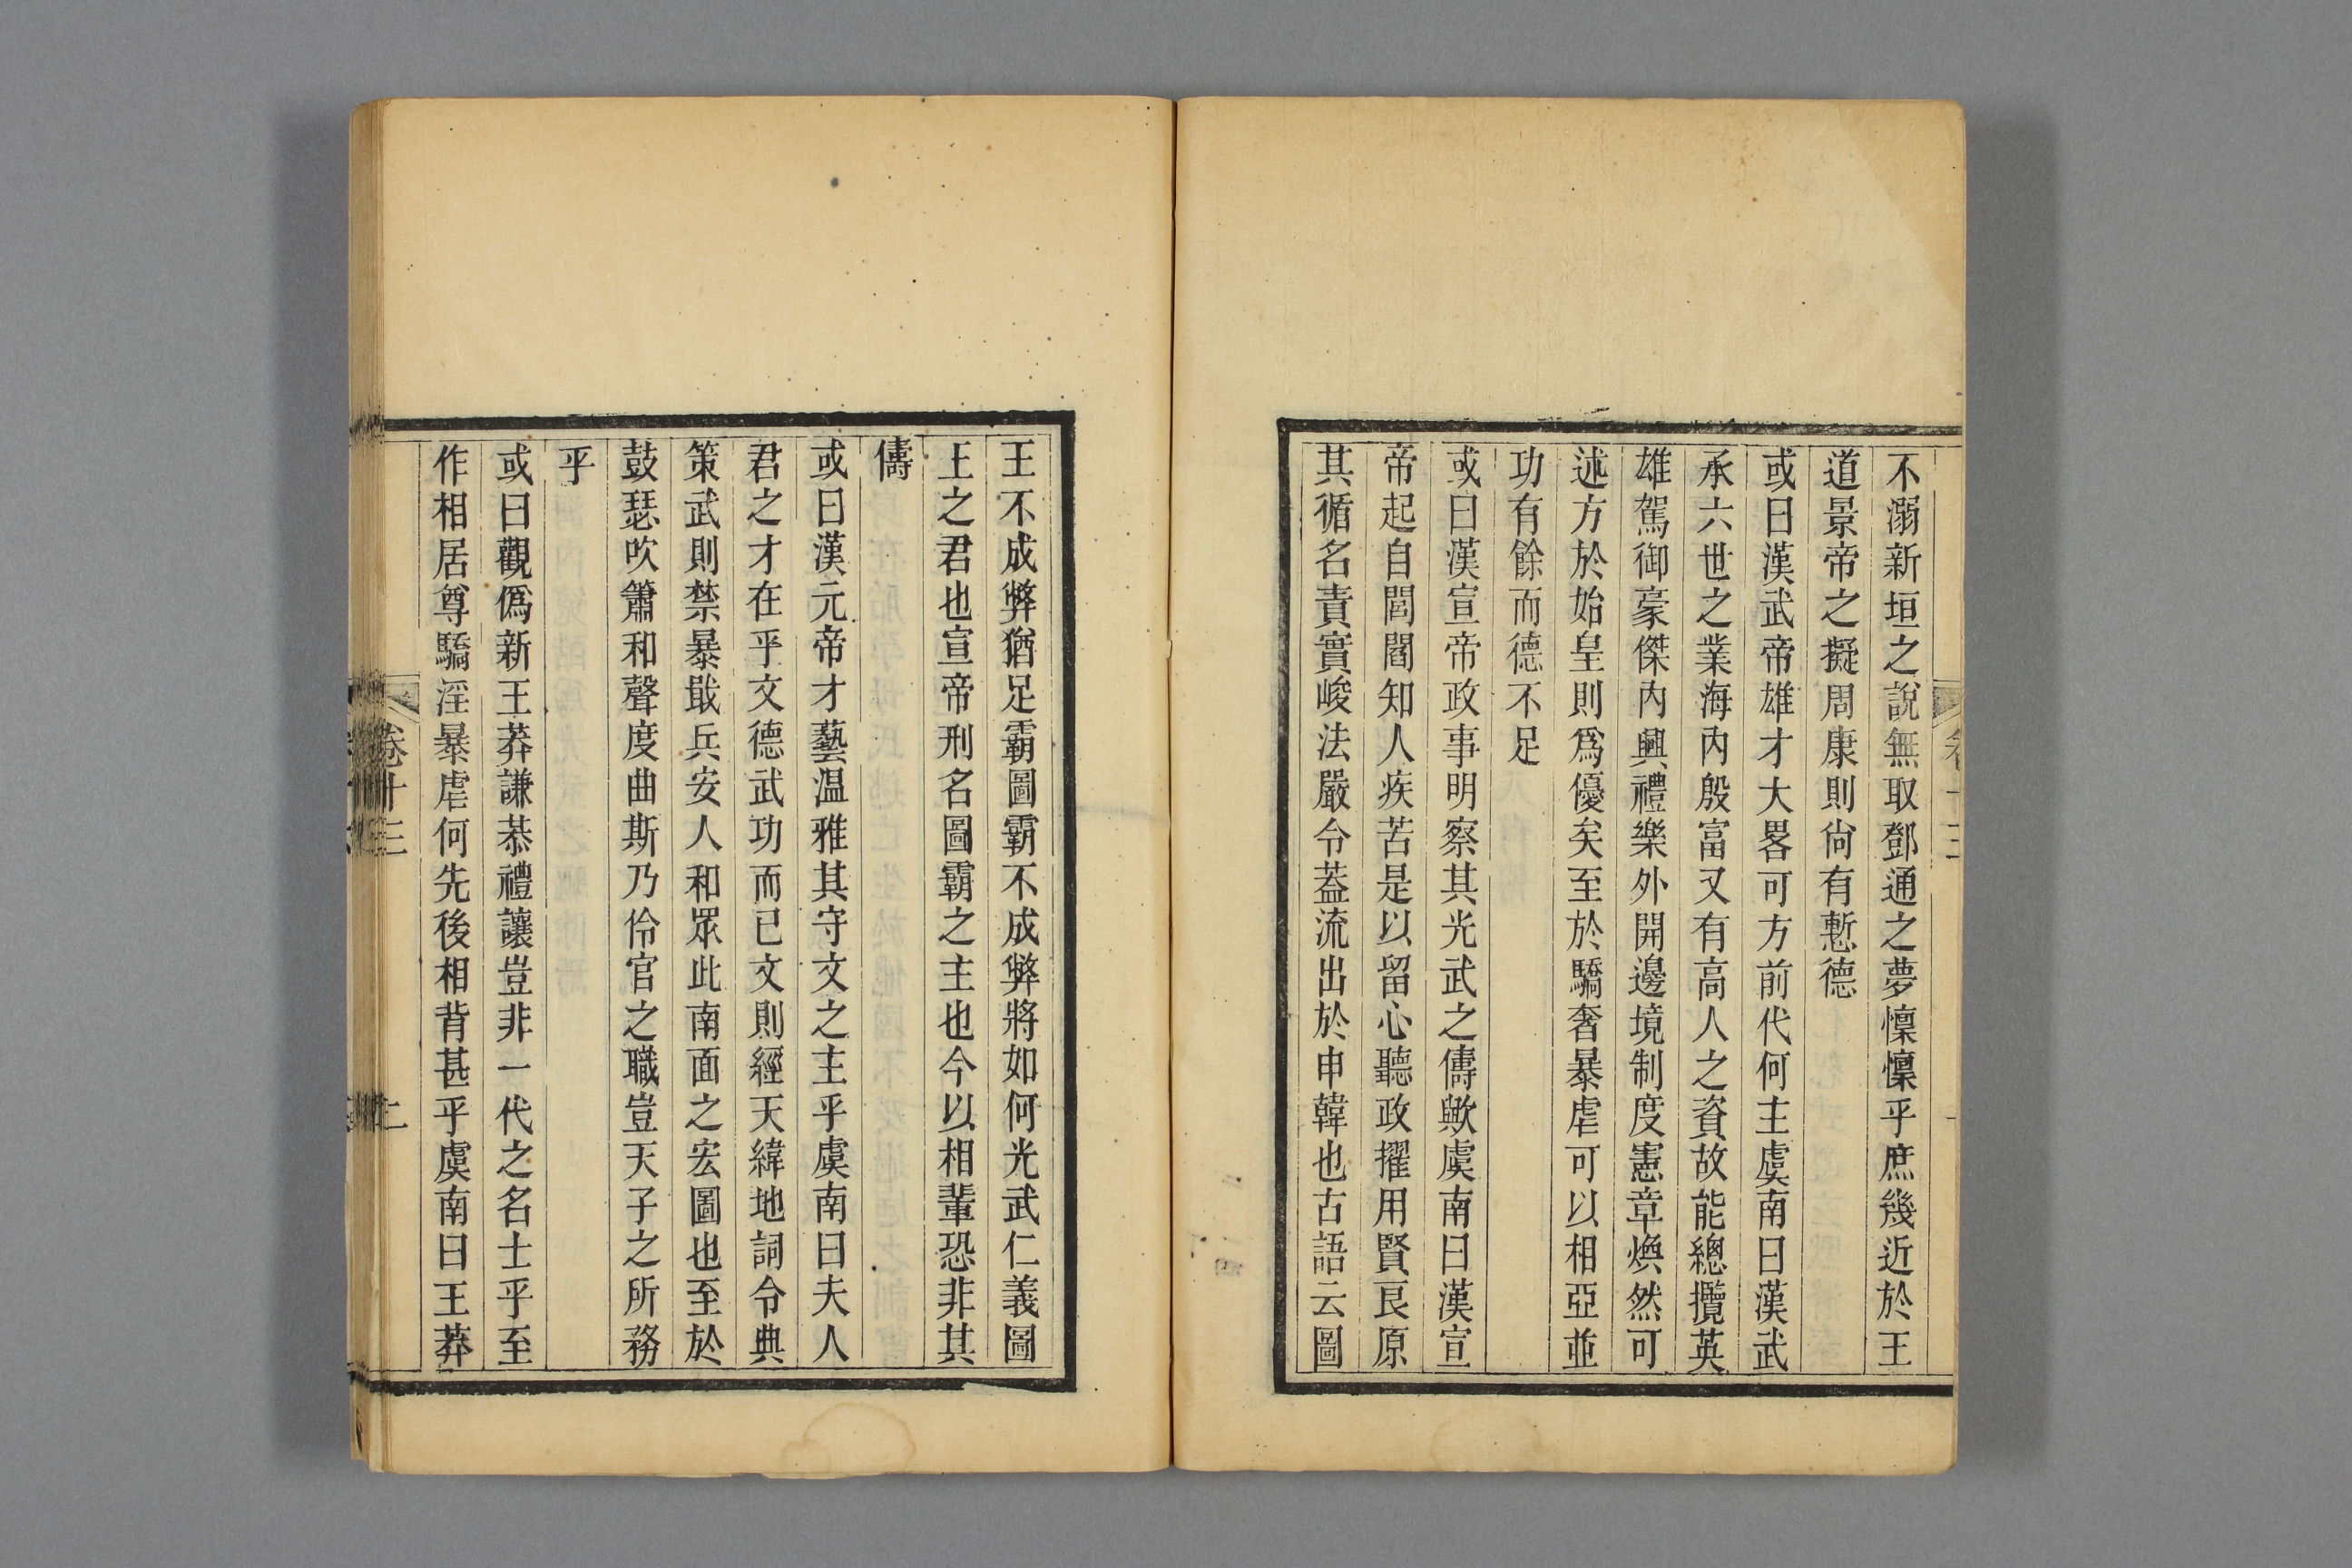 不溺新垣之說無取鄧通之夢懍懍乎庶幾近於王
道景帝之擬周康則尙有慙德
或曰漢武帝雄才大畧可方前代何主虞南曰漢武
承六世之業海內殷富又有高人之資故能總攬英
雄駕御豪傑內興禮樂外開邊境制度憲章煥然可
述方於始皇則爲優矣至於驕奢暴虐可以相亞並
功有餘而德不足
或曰漢宣帝政事明察其光武之儔歟虞南曰漢宣
帝起自閭閻知人疾苦是以留心聽政擢用賢良原
其循名責實峻法嚴令蓋流出於申韓也古語云圖
王不成弊猶足霸圖霸不成弊將如何光武仁義圖
王之君也宣帝刑名圖霸之主也今以相輩恐非其
儔
或曰漢元帝才藝温雅其守文之主乎虞南曰夫人
君之才在乎文德武功而已文則經天緯地詞令典
策武則禁暴戢兵安人和眾此南面之宏圖也至於
鼓瑟吹簫和聲度曲斯乃伶官之職豈天子之所務
乎
或曰觀僞新王莽謙恭禮讓豈非一代之名士乎至
作相居尊驕淫暴虐何先後相背甚乎虞南曰王莽
卷十三
二